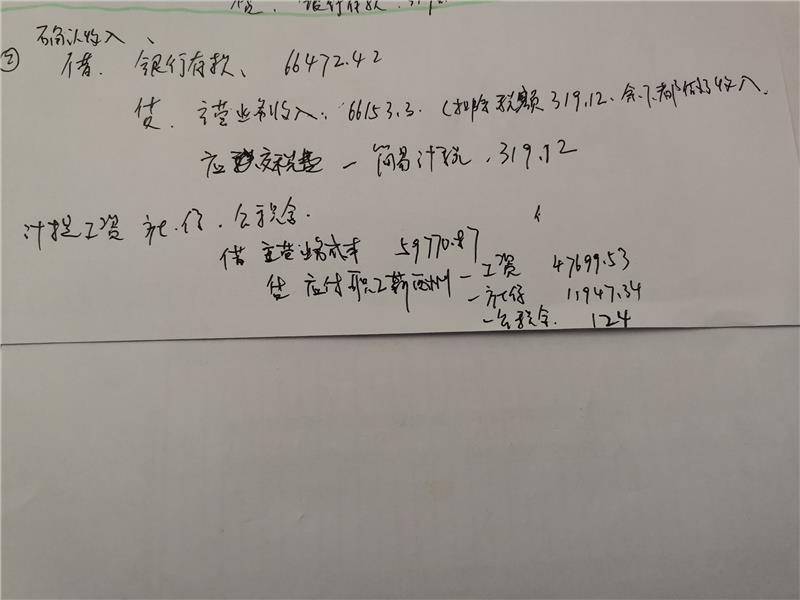 贷：银行存款
确认收入、
② 借. 银行存款、 66472.42
贷. 主营业务收入: 66153.3. (扣除税额 319.12. 余下都作为收入.
应交税费 — 简易计税. 319.12
计提工资 社.保. 公积金.
借 主营业务成本 59770.87
贷 应付职工薪酬 — 工资 47699.53
— 社保 11947.34
— 公积金. 124